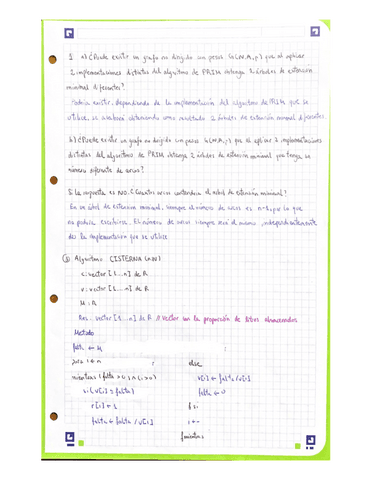 1. a) ¿Puede existir un grafo no dirigido con pesos G=(N,A,p) que al aplicar
2 implementaciones distintas del algoritmo de PRIM obtenga 2 árboles de extensión
minimal diferentes?
Podría existir, dependiendo de la implementación del algoritmo de PRIM que se
utilice, se acabará obteniendo como resultado 2 árboles de extensión minimal diferentes.
b) ¿Puede existir un grafo no dirigido con pesos G=(N,A,p) que al aplicar 2 implementaciones
distintas del algoritmo de PRIM obtenga 2 árboles de extensión minimal que tenga un
número diferente de arcos?
Si la respuesta es NO. ¿Cuántos arcos contendría el árbol de extensión minimal?
En un árbol de extensión minimal, siempre el número de arcos es n-1, por lo que
no podría existir. El número de arcos siempre será el mismo, independientemente
de la implementación que se utilice
Algoritmo CISTERNA
c: vector [1...n] de R
v: vector [1...n] de R
M: R
Res: vector [1...n] de R // vector con la proporción de litros almacenados
Método
falta ← M
i ← n
mientras (falta > 0 ∧ i > 0)
si (v[i] ≤ falta)
r[i] ← 1
falta ← falta / v[i]
else
v[i] ← falta / v[i]
falta ← 0
fsi
i ←
fmientras